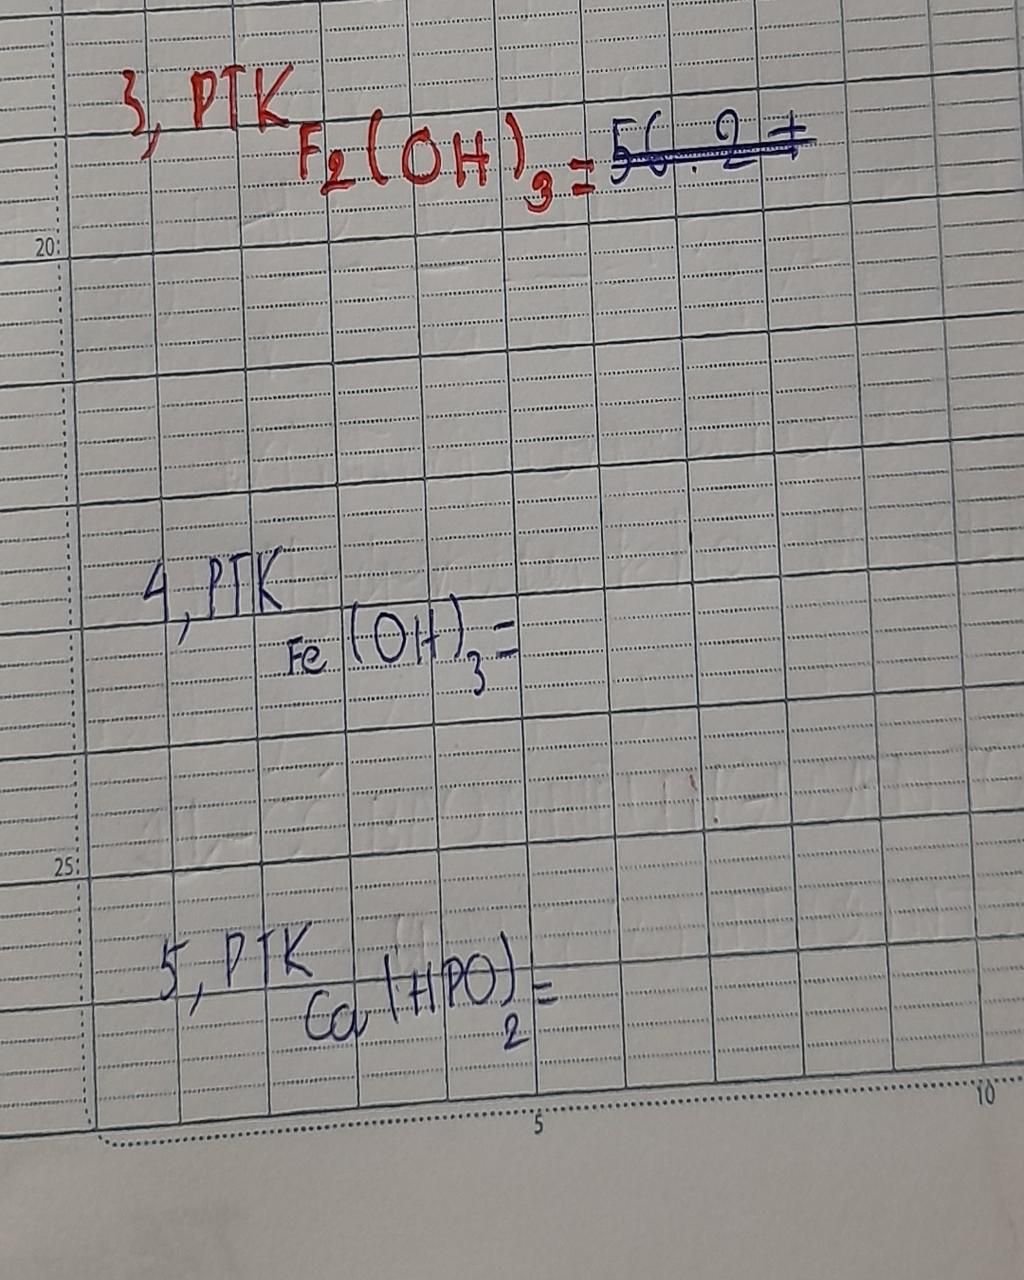 3, PTK F₂(OH)₃ = 56.2 +
20
4, PTK Fe(OH)₃ =
25
5, PTK Ca(HPO)₂ =
5 10